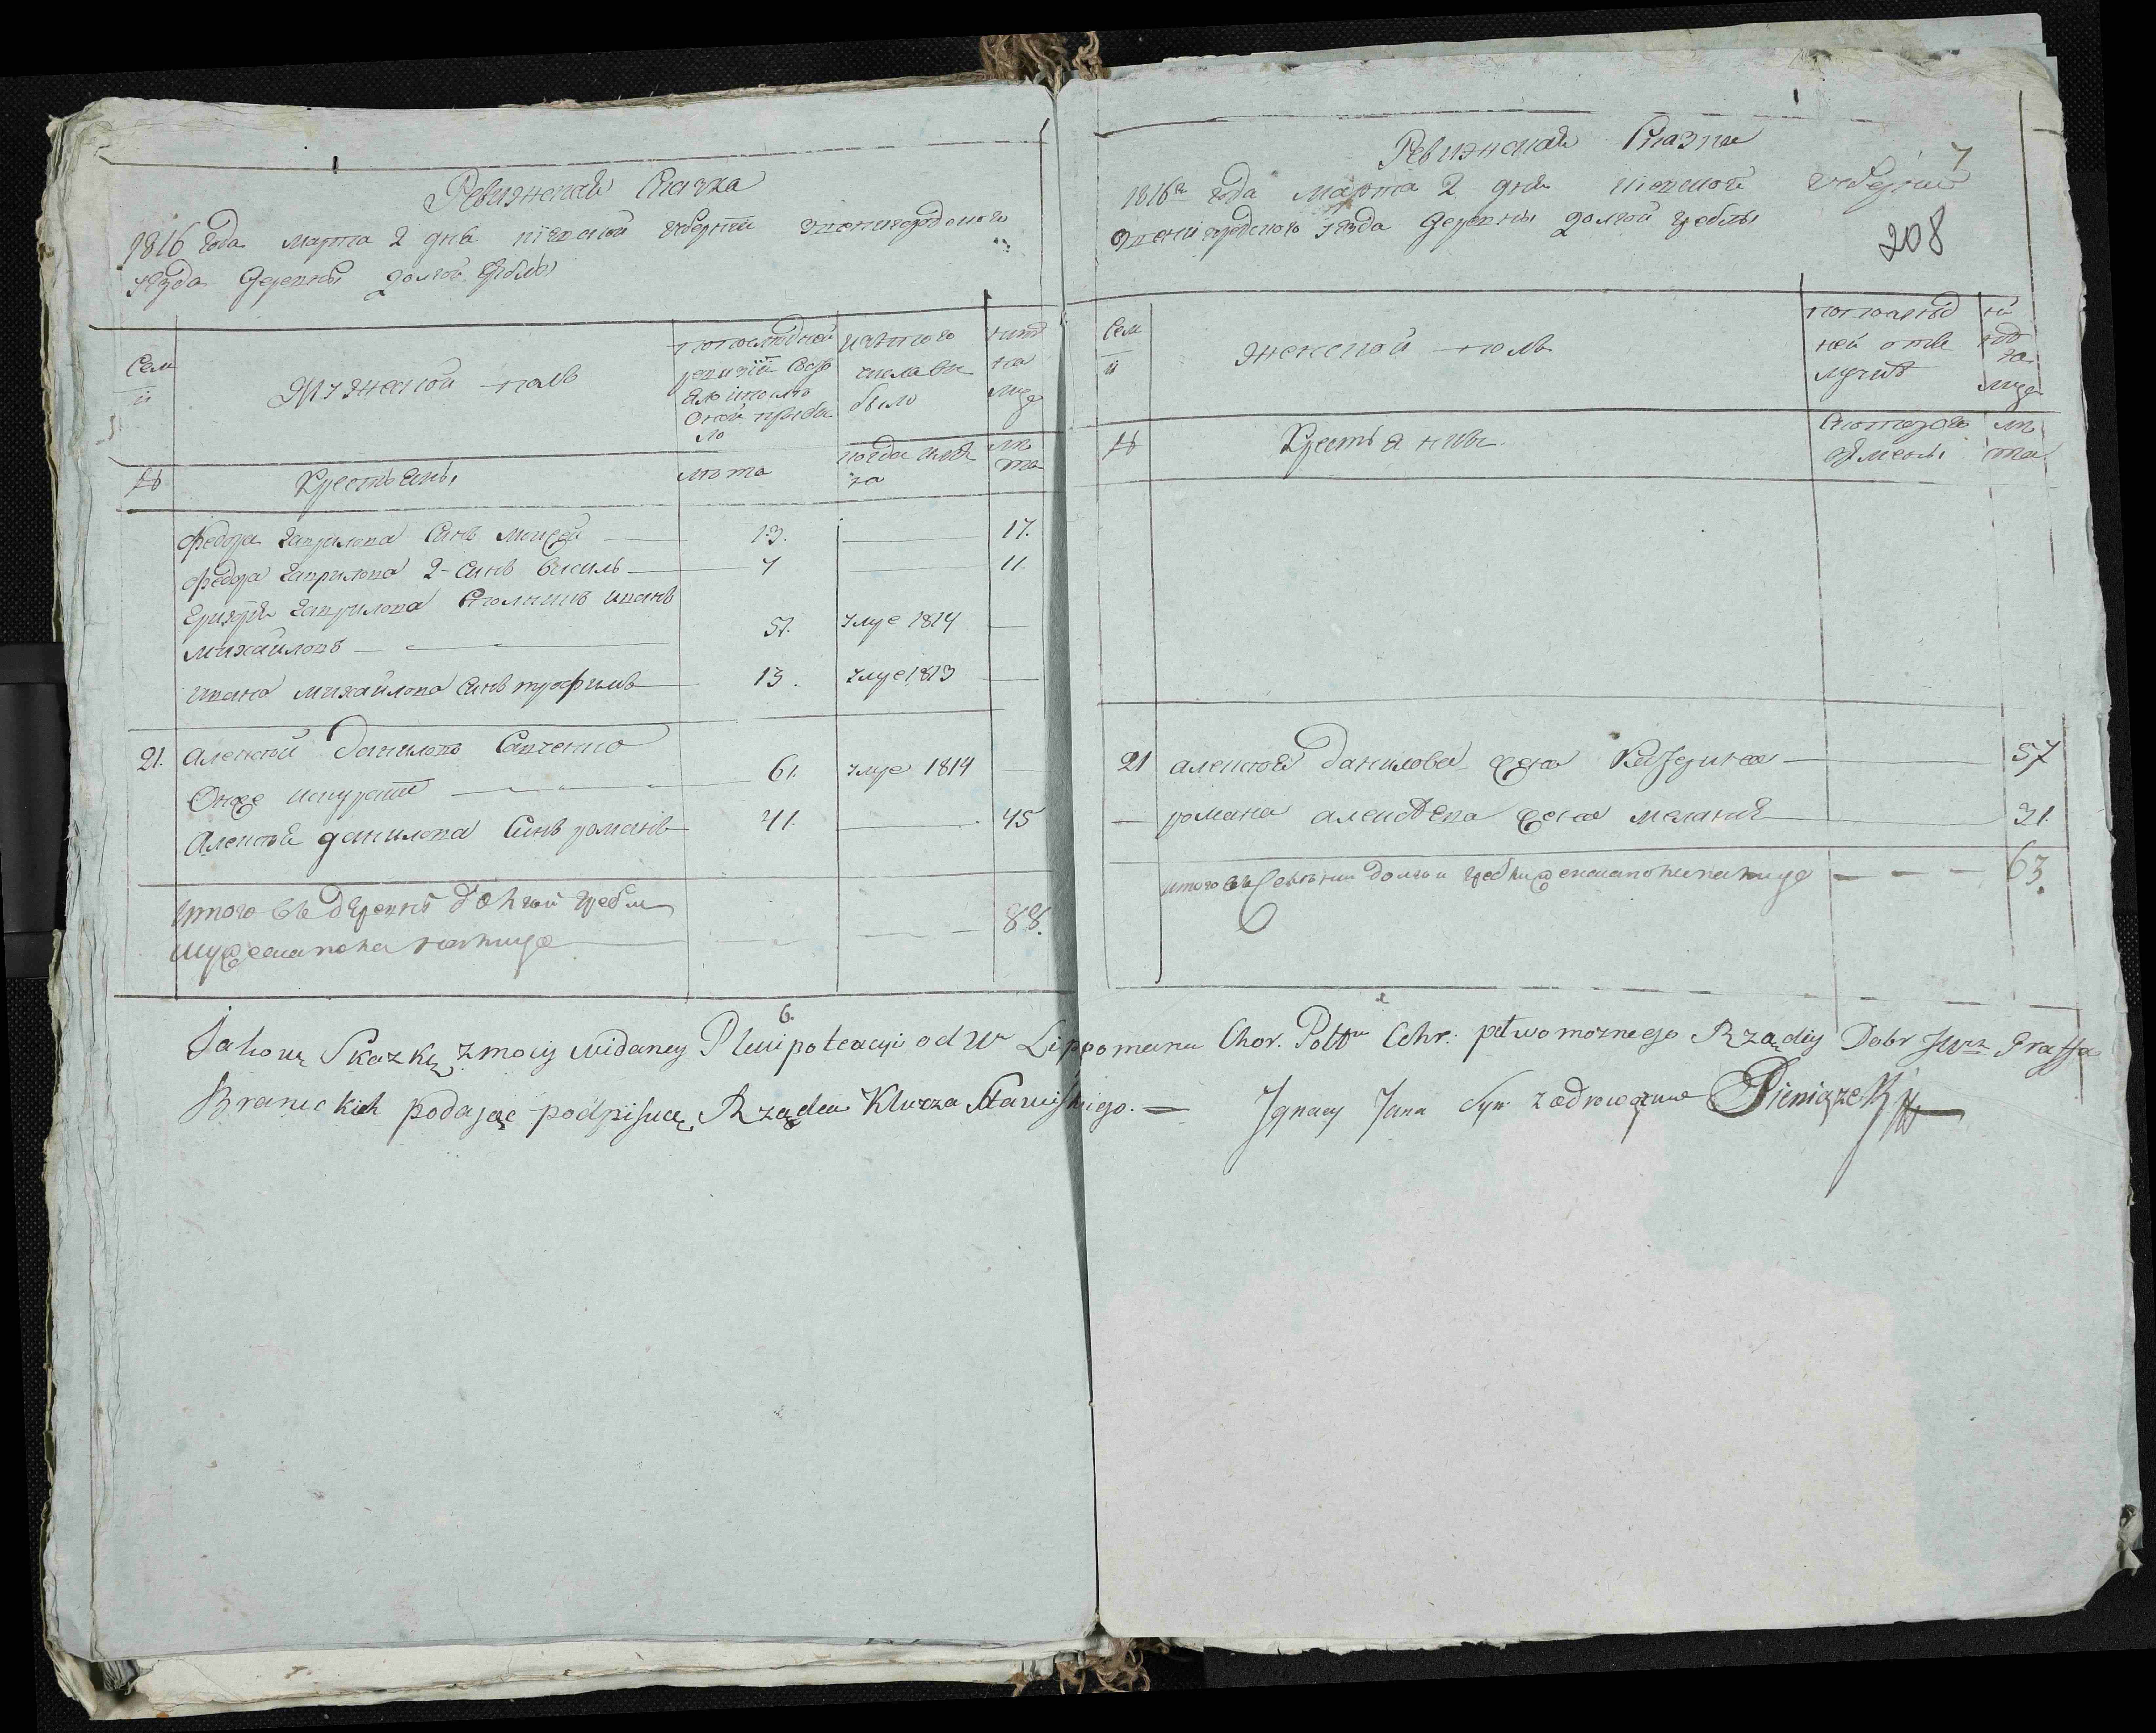 Ревижская Сказка
1816 года марта 2 дня кіевской губерніи звенигородского
уезда деревни долгой гребли
Семіи
Мужеской полъ
попоследной ревизіи состояло и после оной прибыло
изтого числа выбыло
ныне на лице
№
Крестьяны
лета
когда имянно
лета
Федора гаврилова Синъ Моисей — 13. — 17.
Федора гаврилова 2-Синъ василь — 7 — 11.
григорія гаврилова иванъ
михайловъ — 57. умре 1814 —
ивана михайлова Синъ трофимъ — 13. умре 1813 —
21. алексей Даниловъ Савченко
Онже — 61. умре 1814 —
Алексея данилова Синъ романъ — 41. — 45
Итого въ деревне долгой гребли
мужеска пола налице — — — 88.
Ревижская Сказка
7
1816го года марта 2 дня кіевской губерніи
звенигородского уезда деревни долгой гребли
208
Семіи
женской полъ
№
Крестьянки
лета
21 алексея Данилова жена Катерина — 57
— романа алексеева жена меланія — 31.
итого въ Селеніи долгой гребли женска пола налице — — — 63.
Takową Skazkę z mocy widaney Plenipotencyi od W Lippomana Chor. Potw Czhr. pełwomoznego Rządcy Dobr JWch Graffa
Branickich podając podpisuię Rządca Klucza Stawiskiego. — Ignacy Jana Syn Pieniązek